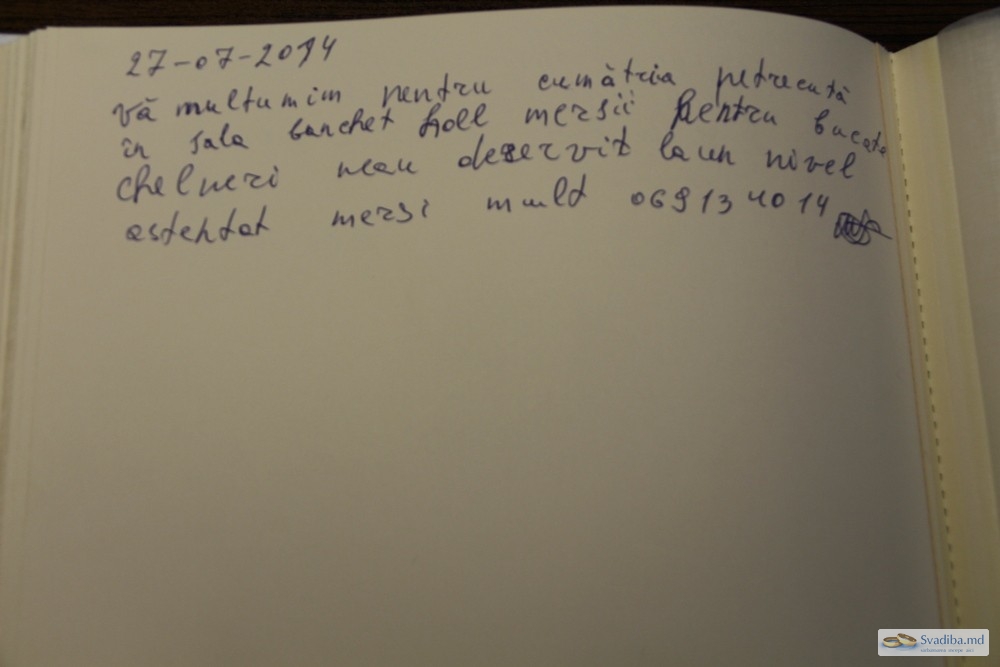 27-07-2014
Vă multumim pentru cumătria petrecută
în sala banchet holl mersii pentru bucate
chelneri neau deservit la un nivel
astehtat mersi mult 069134014
Svadiba.md